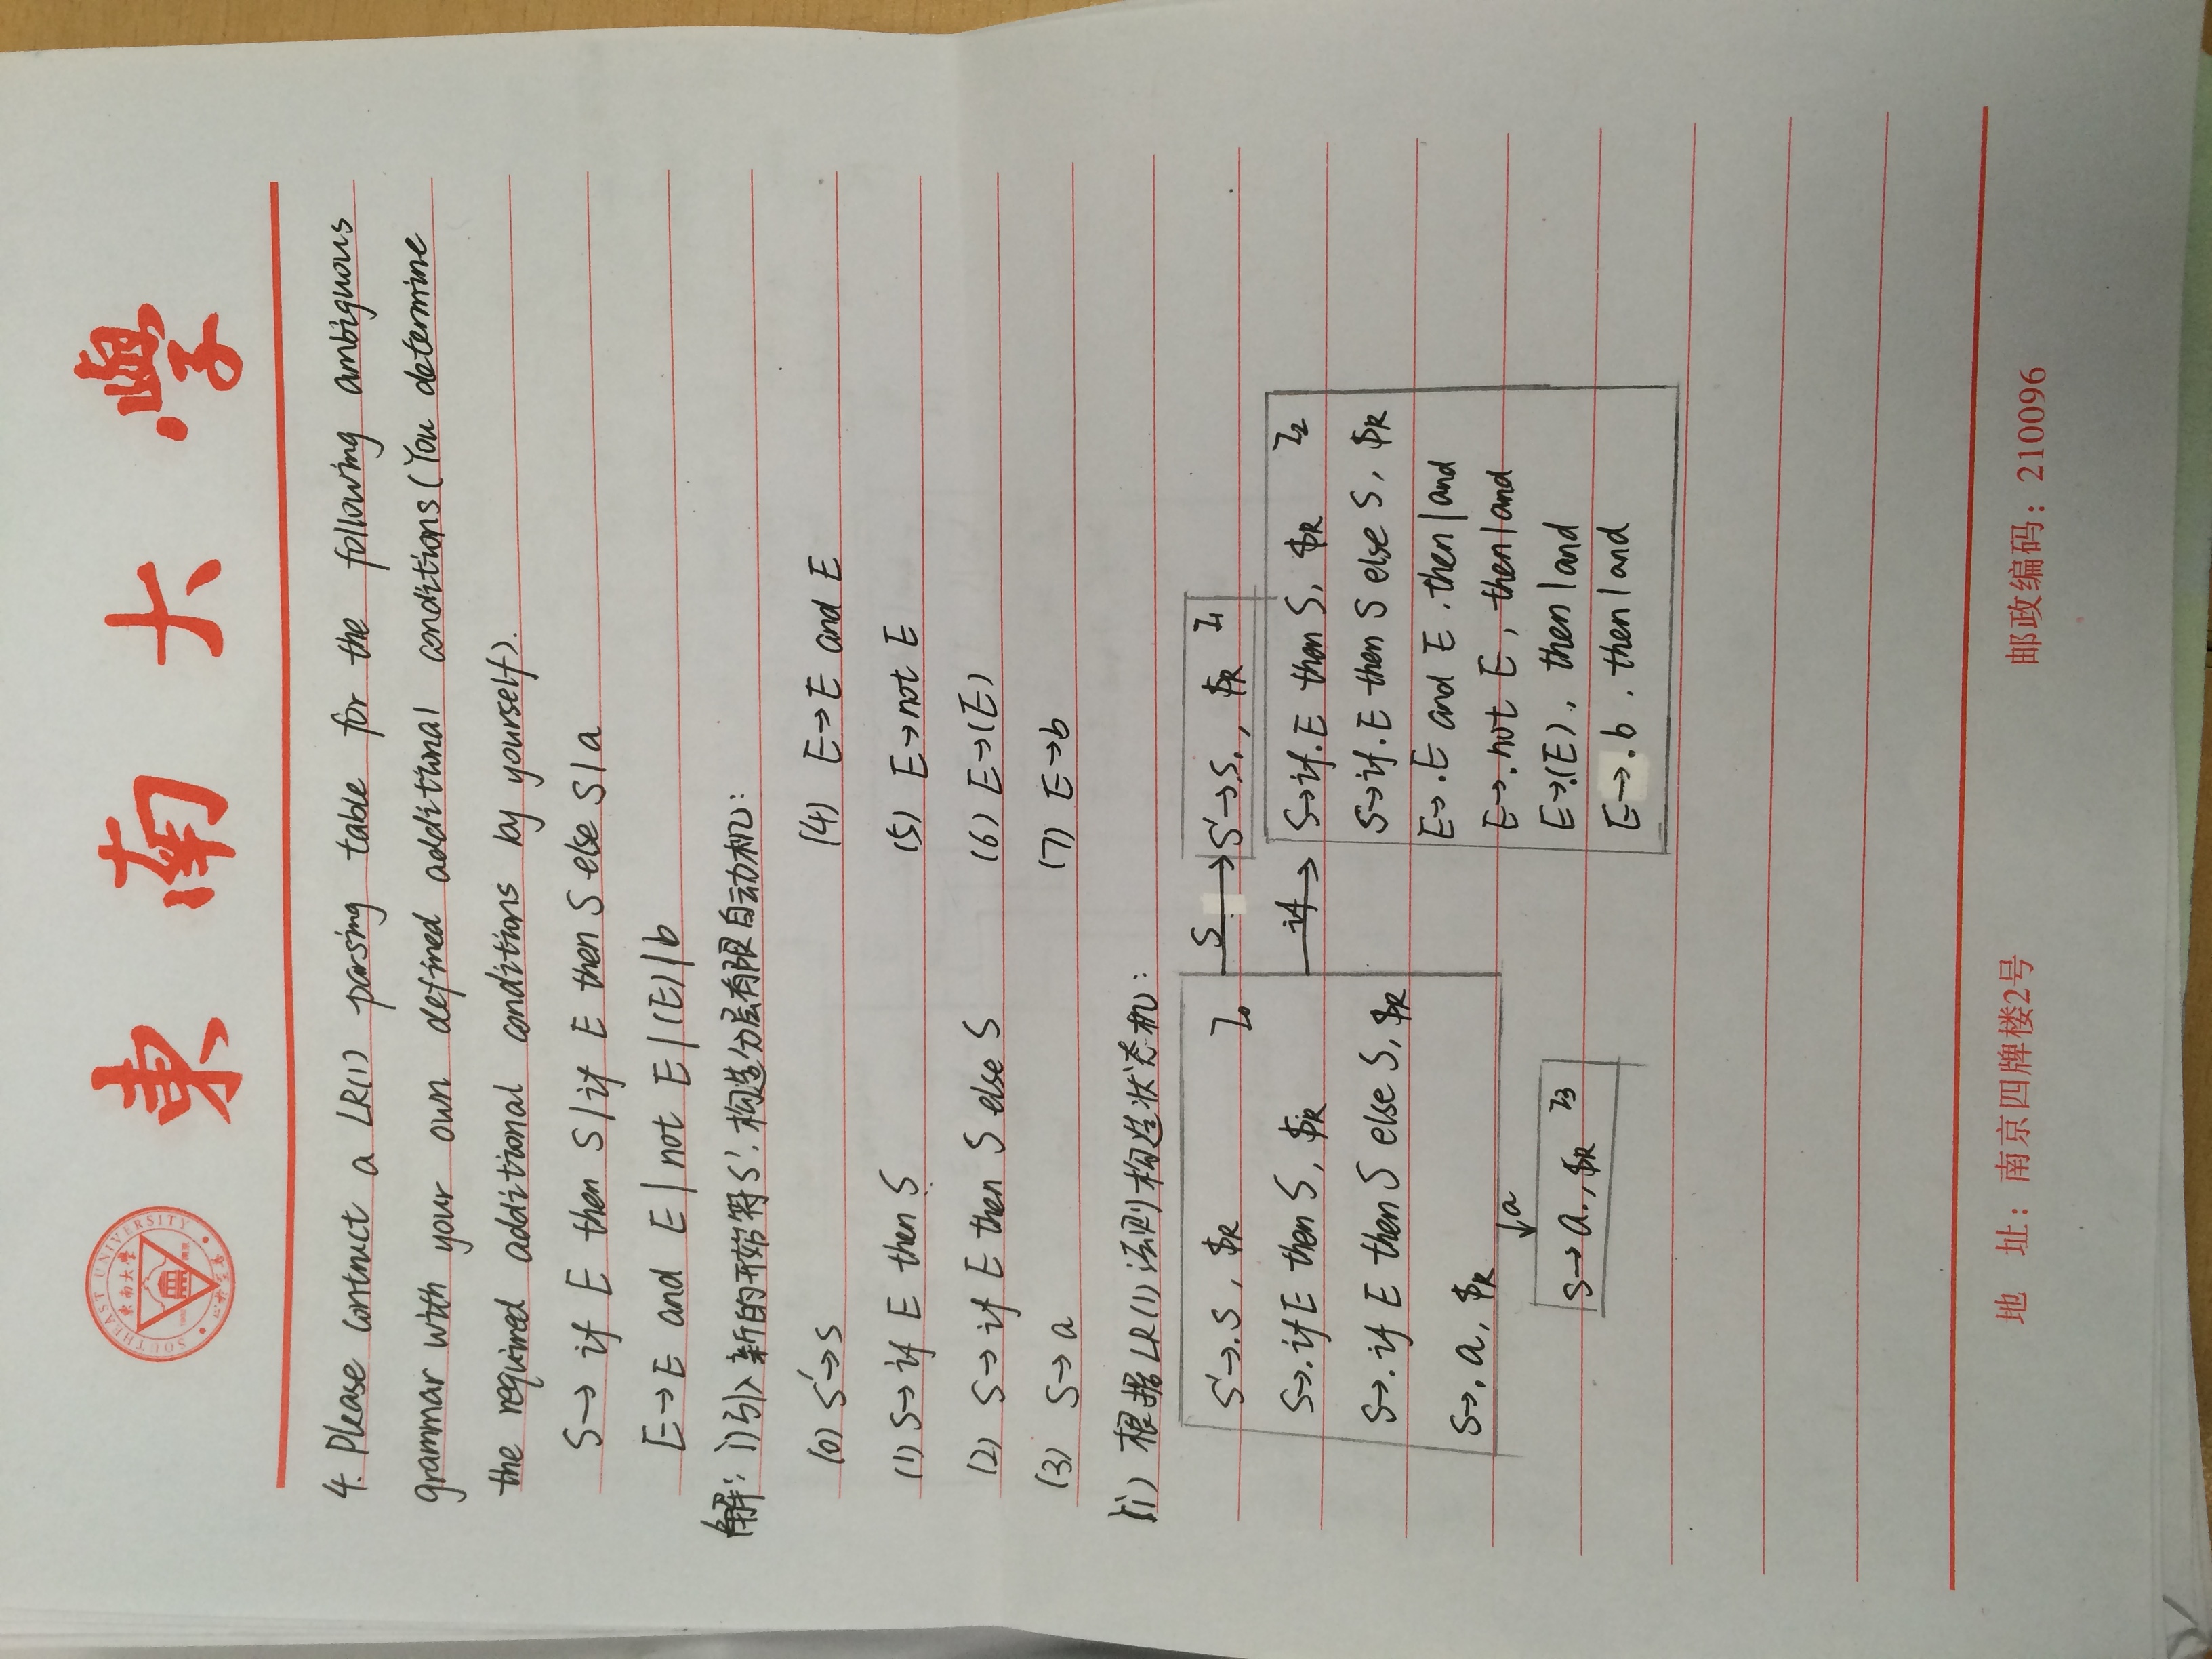 SOUTHEAST UNIVERSITY
東南大學
1902 南京
東南大學
4. Please contruct a LR(1) parsing table for the following ambiguous
grammar with your own defined additional conditions (You determine
the required additional conditions by yourself).
S→ if E then S | if E then S else S | a
E→E and E | not E | (E) | b
解: i)引入新的开始符S', 构造分层有限自动机:
(0) S'→S (4) E→E and E
(1) S→if E then S (5) E→not E
(2) S→if E then S else S (6) E→(E)
(3) S→a (7) E→b
ii) 根据LR(1)法则构造状态机:
S'→.S, $R I0
S
S'→S., $R I1
S→.if E then S, $R
if
S→if.E then S, $R I2
S→.if E then S else S, $R
S→if.E then S else S, $R
E→.E and E, then|and
S→.a, $R
E→.not E, then|and
↓a
E→.(E), then|and
S→a., $R I3
E→.b, then|and
地 址: 南京四牌楼2号 邮政编码: 210096